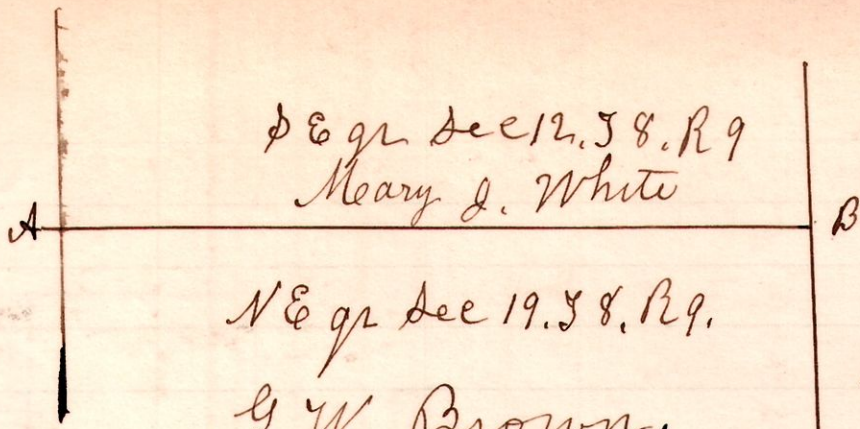 S E qr Sec 12. T 8. R 9
Mary J. White
A B
N E qr Sec 19. T 8. R 9.
G W Brown